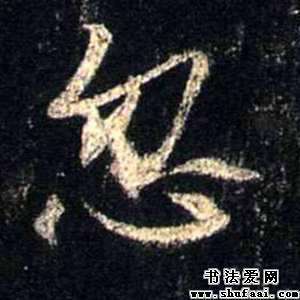 忽
书法爱好网
www.shufaai.com